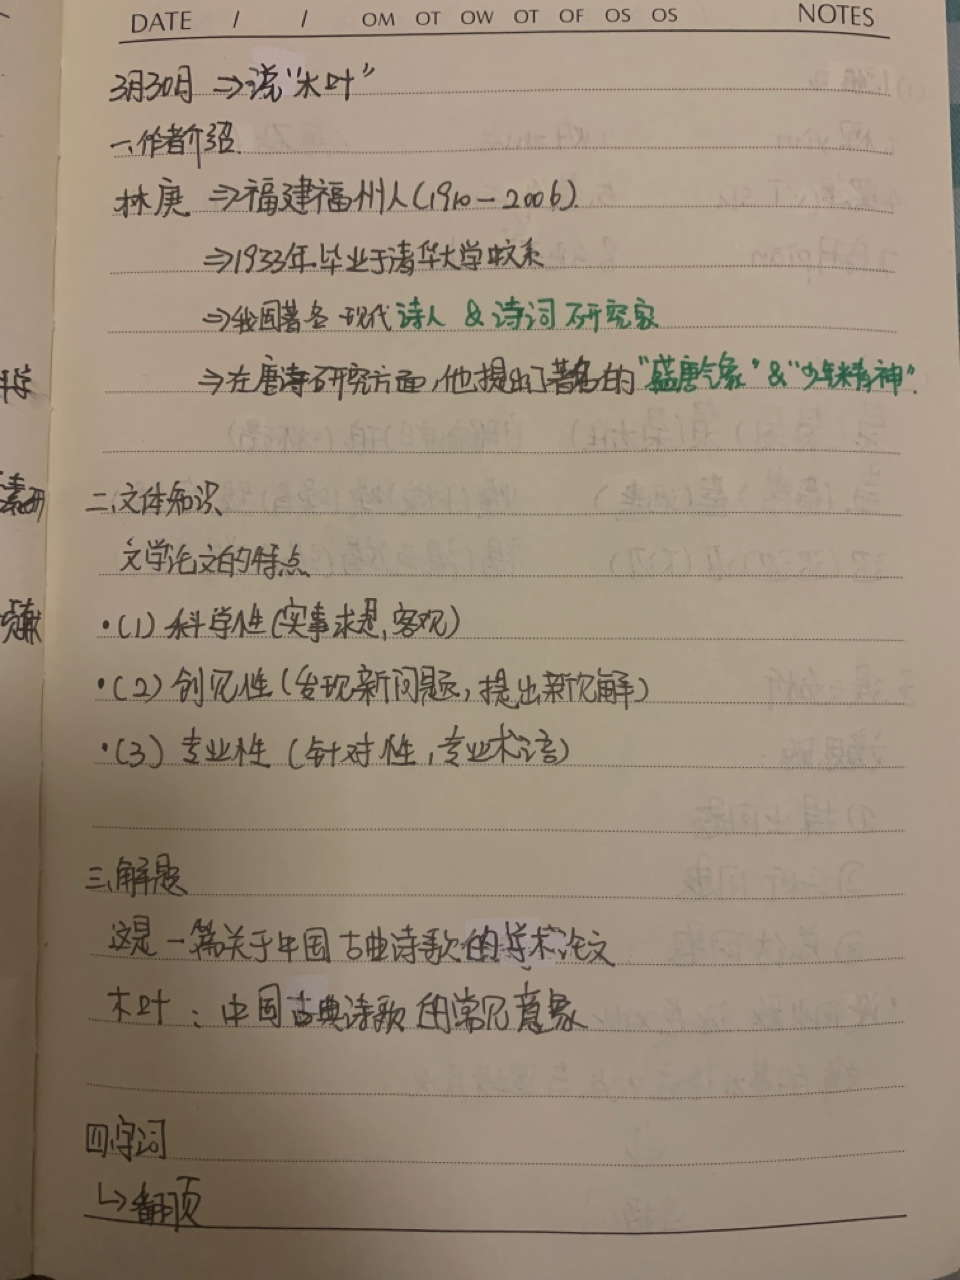 DATE / / OM OT OW OT OF OS OS NOTES
3月30日 ⇒ 说“木叶”
一、作者介绍.
林庚 ⇒ 福建福州人(1910-2006).
⇒ 1933年毕业于清华大学中文系
⇒ 我国著名现代诗人 & 诗词研究家
⇒ 在唐诗研究方面,他提出了著名的“盛唐气象”&“少年精神”.
二、文体知识
文学论文的特点
·(1) 科学性(实事求是,客观)
·(2) 创见性(发现新问题,提出新见解)
·(3) 专业性(针对性,专业术语)
三、解题
这是一篇关于中国古典诗歌的学术论文
木叶:中国古典诗歌的常见意象
四、字词
↳ 翻页